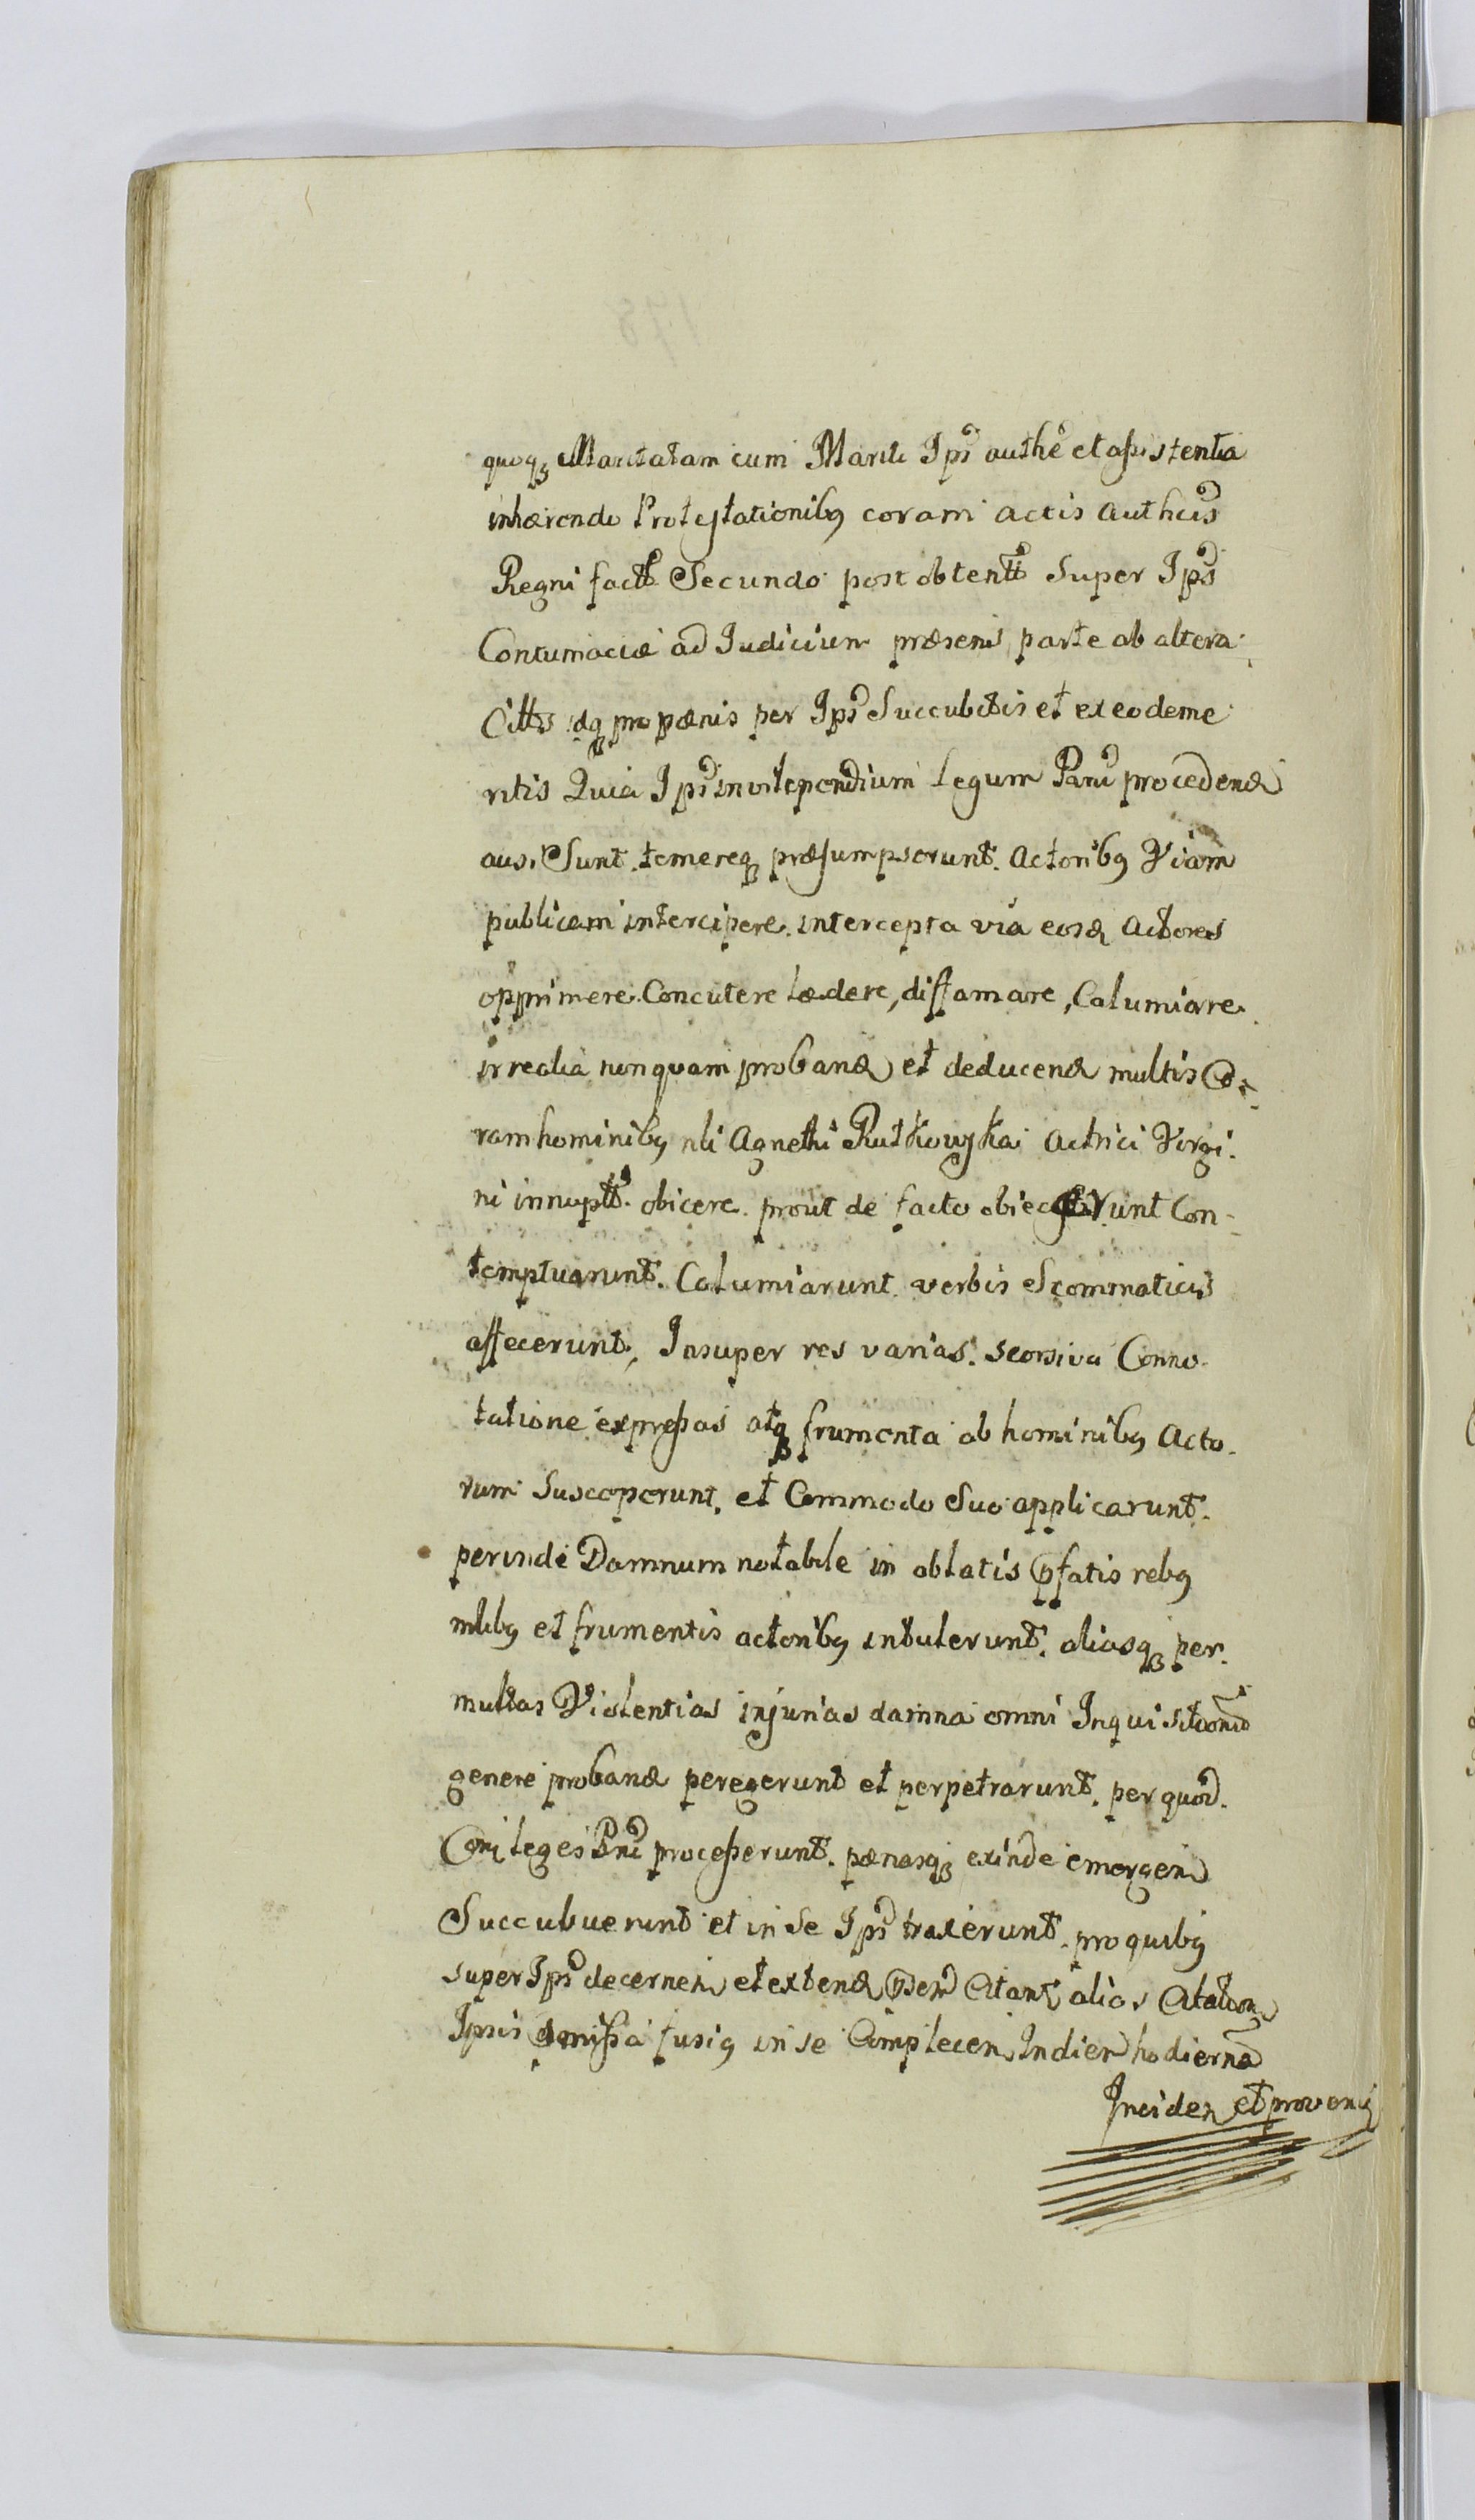 quoq Maritatam cum Mariti Ips authe et assistentia
inhærendo Protestationibq coram actis Authcis
Regni fact Secundo post obtent Super Ips
Contumaciæ ad Judicium præsens parte ab altera
Citts idq pro pænis per Ips Succubitis et ex eo deme
ritis Quia Ips in vilependium Legum procedend
ausi Sunt. temereq præsumpserunt. Actoribq Viam
publicam intercipere. intercepta via eosd Actores
opprimere. Concutere Lædere, diffamare, Calumiare
irrealia nunquam proband et deducend multis Co-
ram hominibq nli Agnethi Rutkowska Actrici Virgi.
ni innupt. obicere. prout de facto obiecerunt Con-
temptuarunt. Calumiarunt verbis Scommaticis
affecerunt, Insuper res varias. seorsiva Conno-
tatione expressas atq frumenta ab hominibq Acto-
rum Susceperunt. et Commodo Suo applicarunt.
perinde Damnum notabile in ablatis pfatis rebq
mlibq et frumentis actoribq intulerunt. aliasq per.
multas Violentias injurias damna omni Inquisitionis
genere proband peregerunt et perpetrarunt. per quod.
leges processerunt. pænasq exinde emergen
Succubuerunt et in Se Ips traxerunt. pro quibq
super Ips decernen et extend Citant alias Citation
Ipsis missa fusiq in se Complecen In diem hodierna
Inciden et proveni